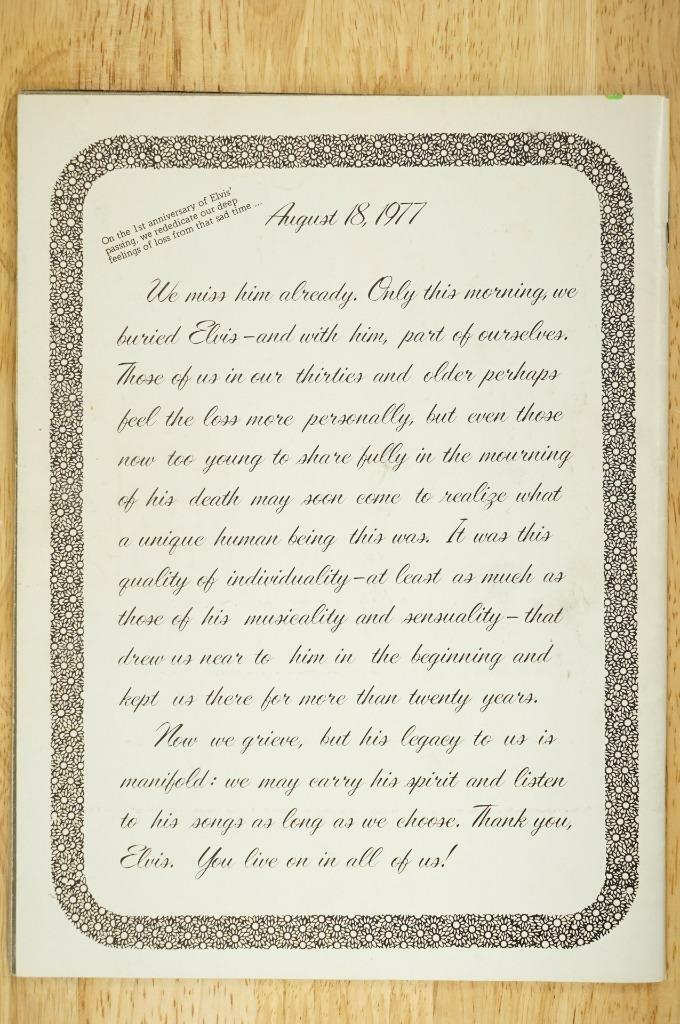 On the 1st anniversary of Elvis'
passing, we rededicate our deep
feelings of loss from that sad time ...
August 18, 1977
We miss him already. Only this morning, we
buried Elvis—and with him, part of ourselves.
Those of us in our thirties and older perhaps
feel the loss more personally, but even those
now too young to share fully in the mourning
of his death may soon come to realize what
a unique human being this was. It was this
quality of individuality—at least as much as
those of his musicality and sensuality—that
drew us near to him in the beginning and
kept us there for more than twenty years.
Now we grieve, but his legacy to us is
manifold: we may carry his spirit and listen
to his songs as long as we choose. Thank you,
Elvis. You live on in all of us!